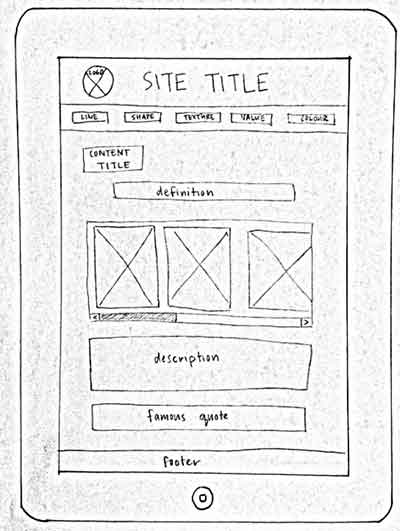 LOGO
SITE TITLE
LINE
SHAPE
TEXTURE
VALUE
COLOUR
CONTENT
TITLE
definition
description
famous quote
footer